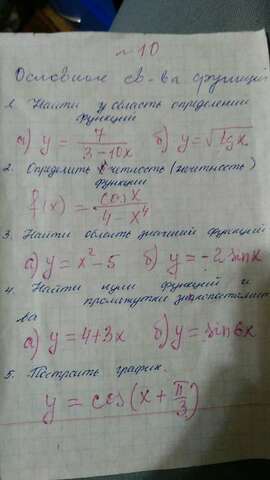 № 10
Основные св-ва функций
1. Найти область определения
функции
а) y = 7/(3-10x) б) y = √lg x
2. Определить чётность (нечётность)
функции
f(x) = cos x/(4 - x⁴)
3. Найти область значений функций
а) y = x² - 5 б) y = -2 sin x
4. Найти нули функций и
промежутки знакопостоянст
ва
а) y = 4+3x б) y = sin 6x
5. Построить график.
y = cos(x + π/3)